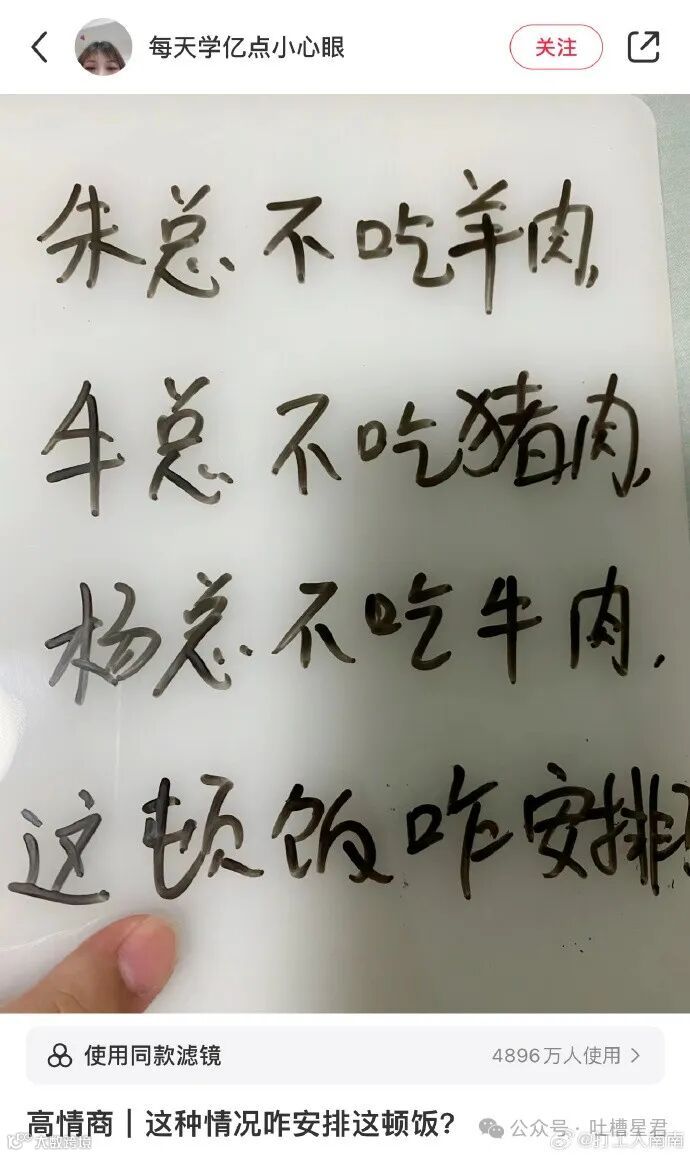 每天学亿点小心眼
关注
朱总不吃羊肉,
牛总不吃猪肉,
杨总不吃牛肉.
这顿饭咋安排
使用同款滤镜
4896万人使用
高情商|这种情况咋安排这顿饭?
公众号·吐槽星君
@打工人南南
大数跨境